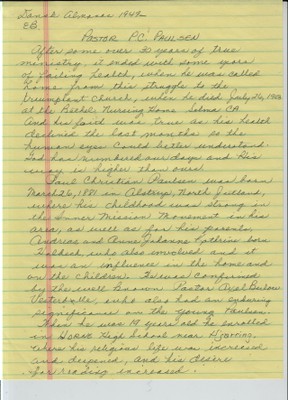 Dansk Almanac 1949
EB.
PASTOR P.C. PAULSEN
After some over 50 years of true
ministry, it ended with some years
of failing health, when he was called
home from this struggle to the
triumphant Church, when he died July 26, 1948
at the Bethel Nursing Home Solvang CA
And his faith was true as his health
declined the last months so the
human eyes could better understand
God has numbered our days and His
way is higher than ours
Paul Christian Paulsen was born
March 26, 1881 in Alstrup, North Jutland,
where his childhood was strong in
the Inner Mission Movement in his
area, as well as for his parents
Andreas and Anne Johanne Cathrine born
who also involved and it
was an influence in the home and
on the Children. He was confirmed
by the well known Pastor Axel Bulow
who also had an enduring
significance on the young Paulsen.
When he was 19 years old he enrolled
in Horne High School near Hjørring,
where his religious life was increased
and deepened, and his desire
for reading increased.